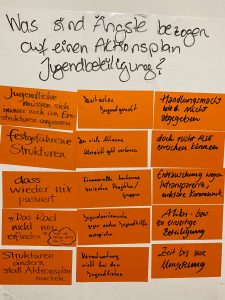 Was sind Ängste bezogen
auf einen Aktionsplan
Jugendbeteiligung?
Jugendliche
müssen sich
immer noch an Erw.
strukturen anpassen
festgefahrene
Strukturen
dass
wieder nix
passiert
Das Rad
nicht neu
erfinden
Strukturen
ändern
statt Aktionsplan
machen
Zeitachse
Jugendgerecht
zu viele Akteure
Übersicht geht verloren
Finanzielle Konkurrenz
zwischen Projekten/
gruppen
Jugendparlamente
gegen andere Jugendhilfe
ausspielen
Verantwortung
nicht bei den
Jugendlichen
Handlungsmacht
wird nicht
abgegeben
doch nicht ALLE
erreichen können
Enttäuschung wegen
unklare Kommunik.
Alibi- bzw
Beteiligung
Zeit bis zur
Umsetzung